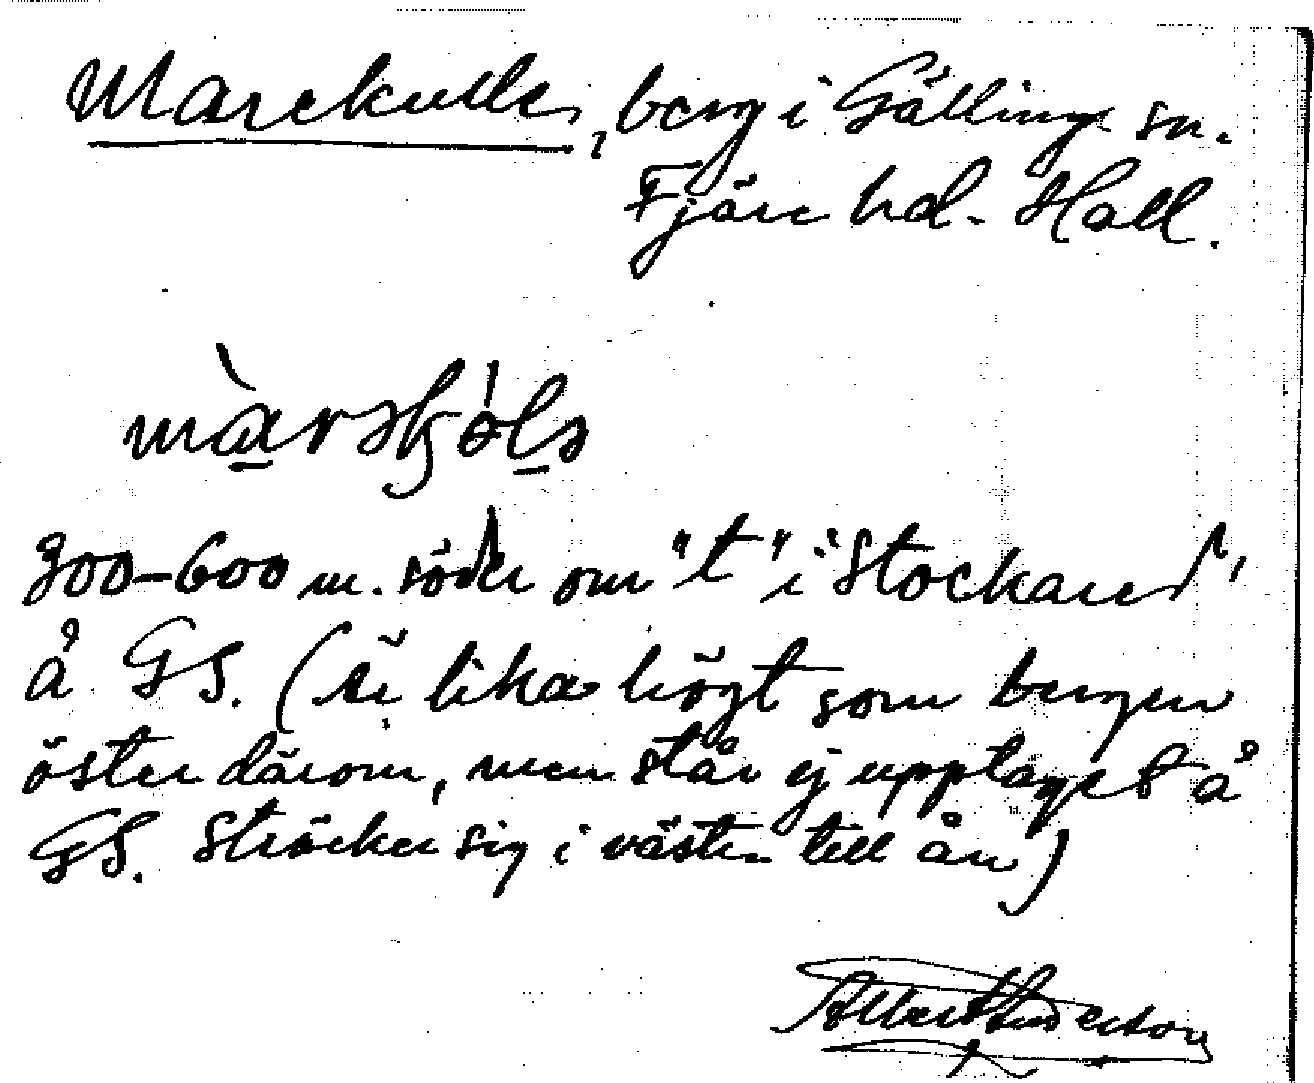 Marekulle, berg i Gällinge sn.
Fjäre hd. Hall.
300-600 m. söder om "t" i "Stockared"
å GS. (Är lika högt som bergen
öster därom, men står ej upptaget å
GS. Sträcker sig i väster till ån)
Albert Anderson